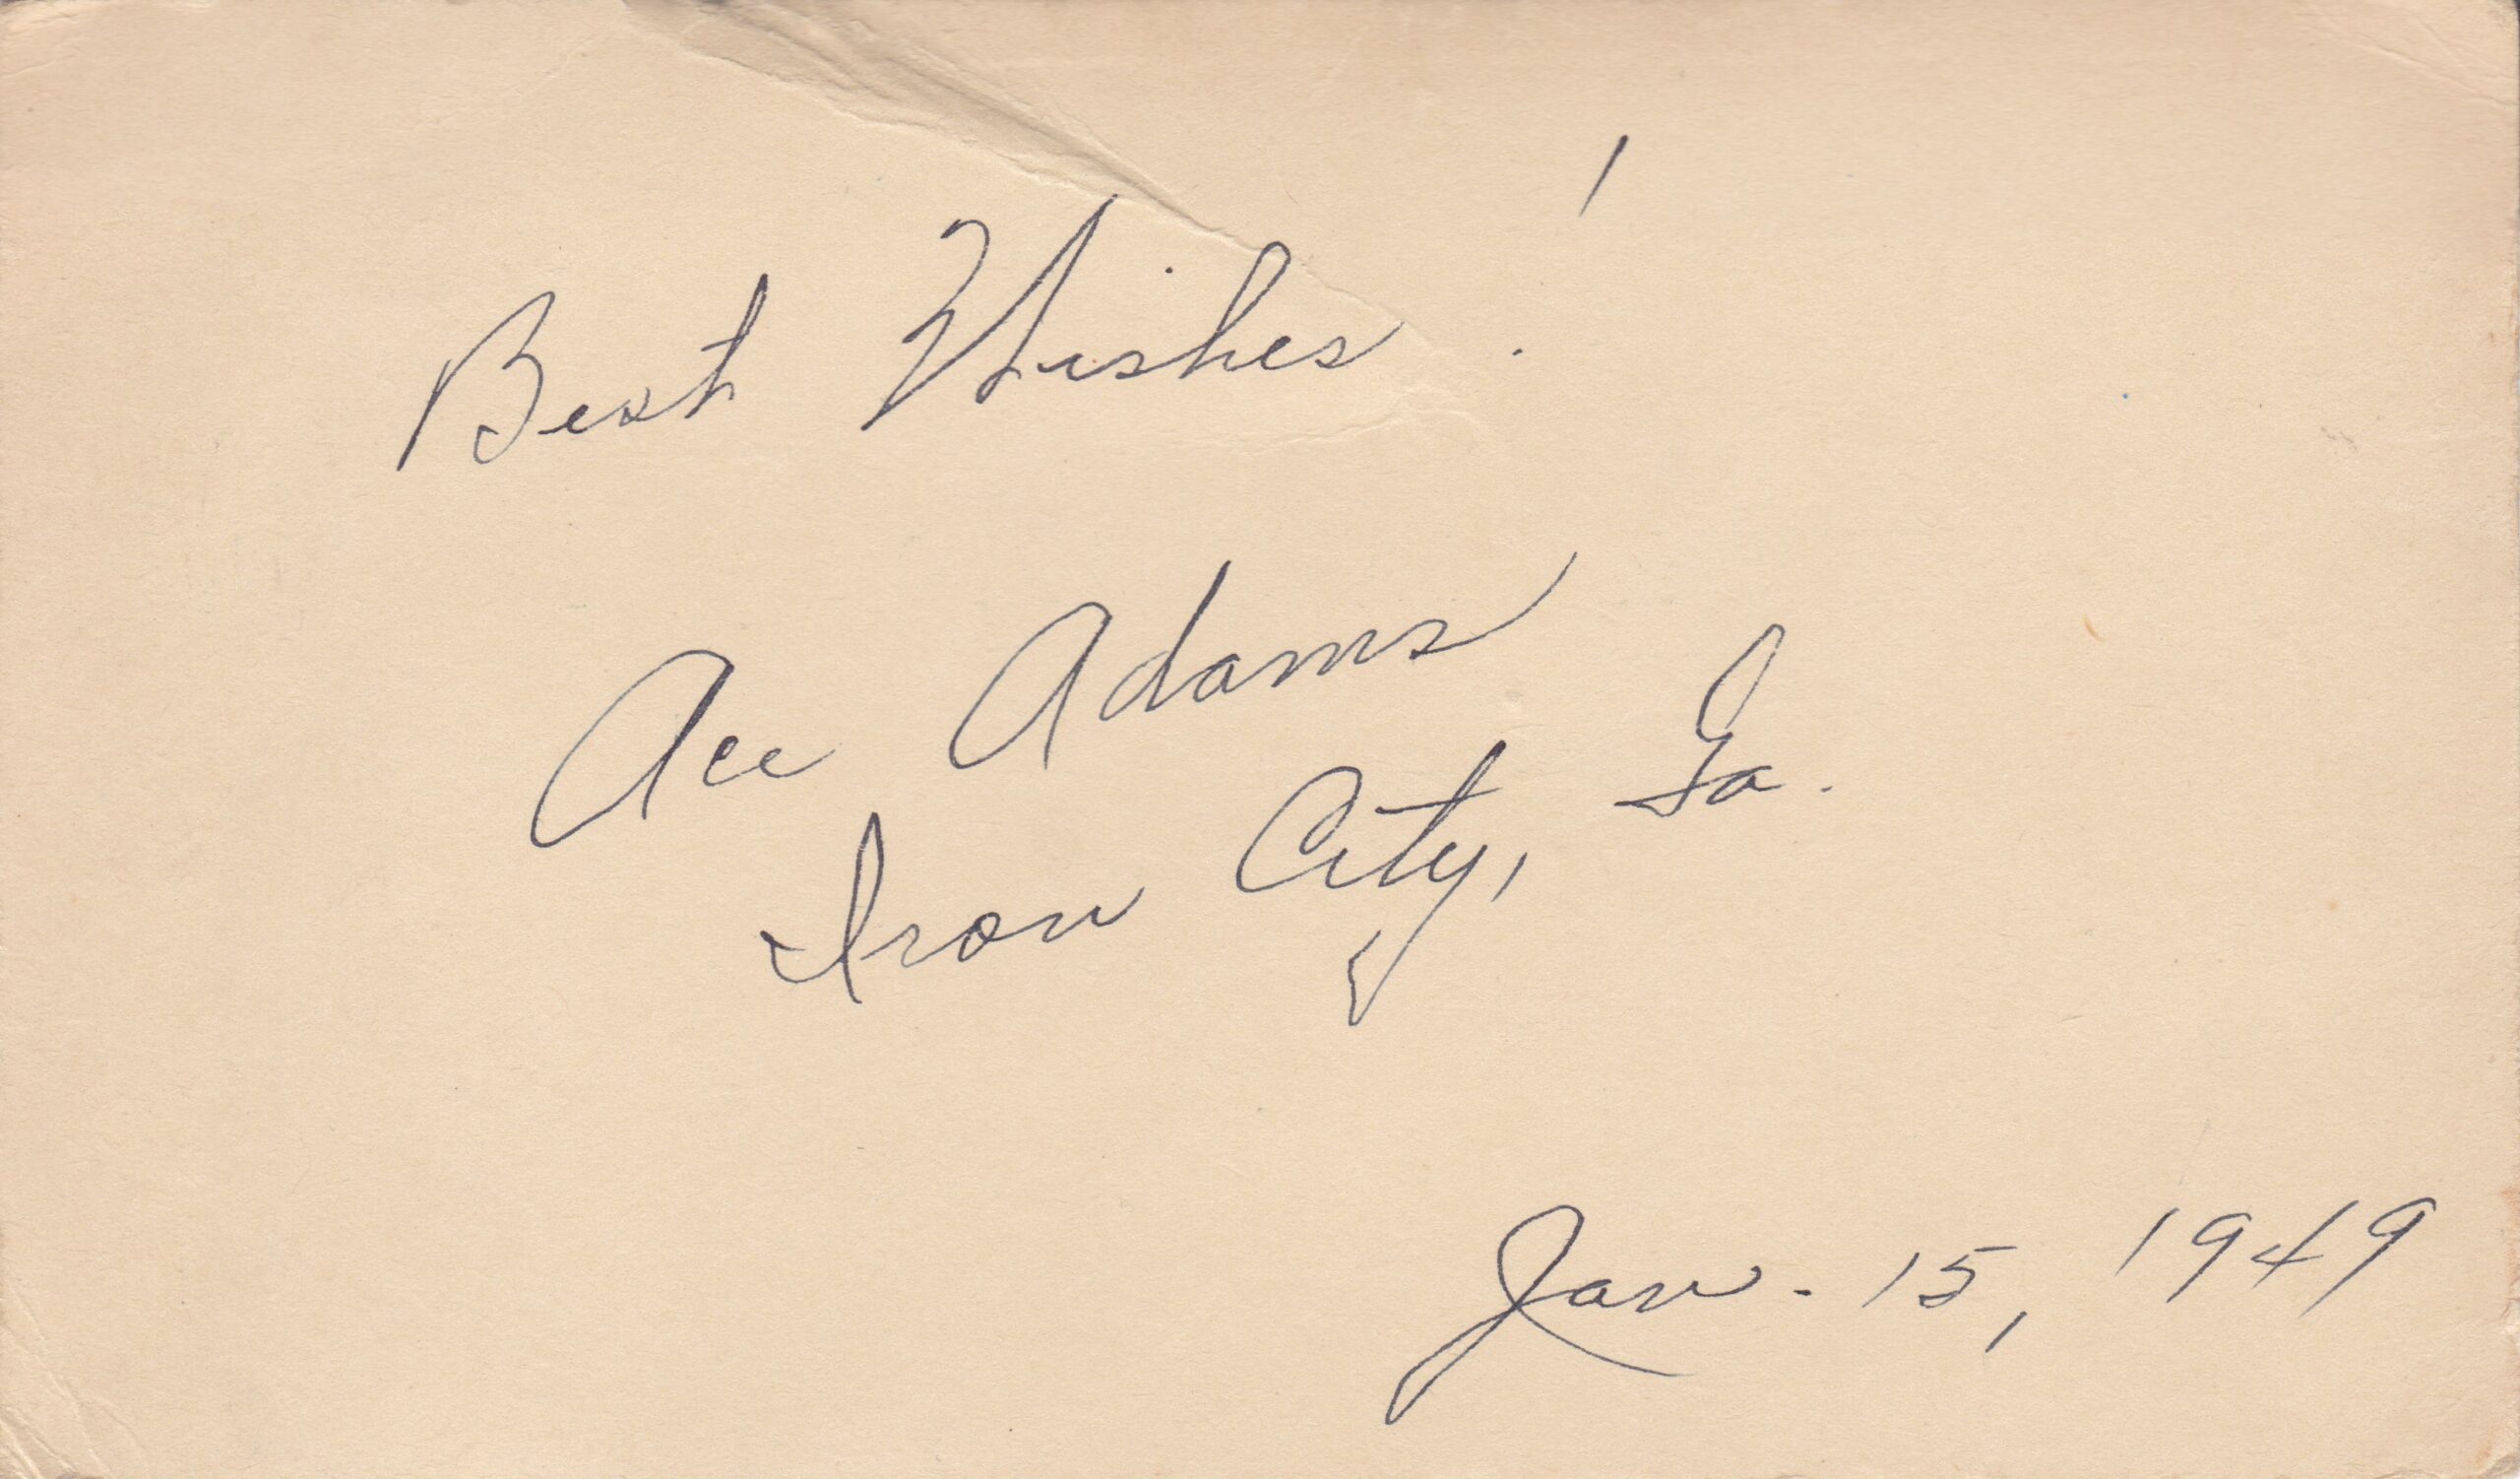 Best Wishes!
Ace Adams
Iron City, Ga.
Jan. 15, 1949